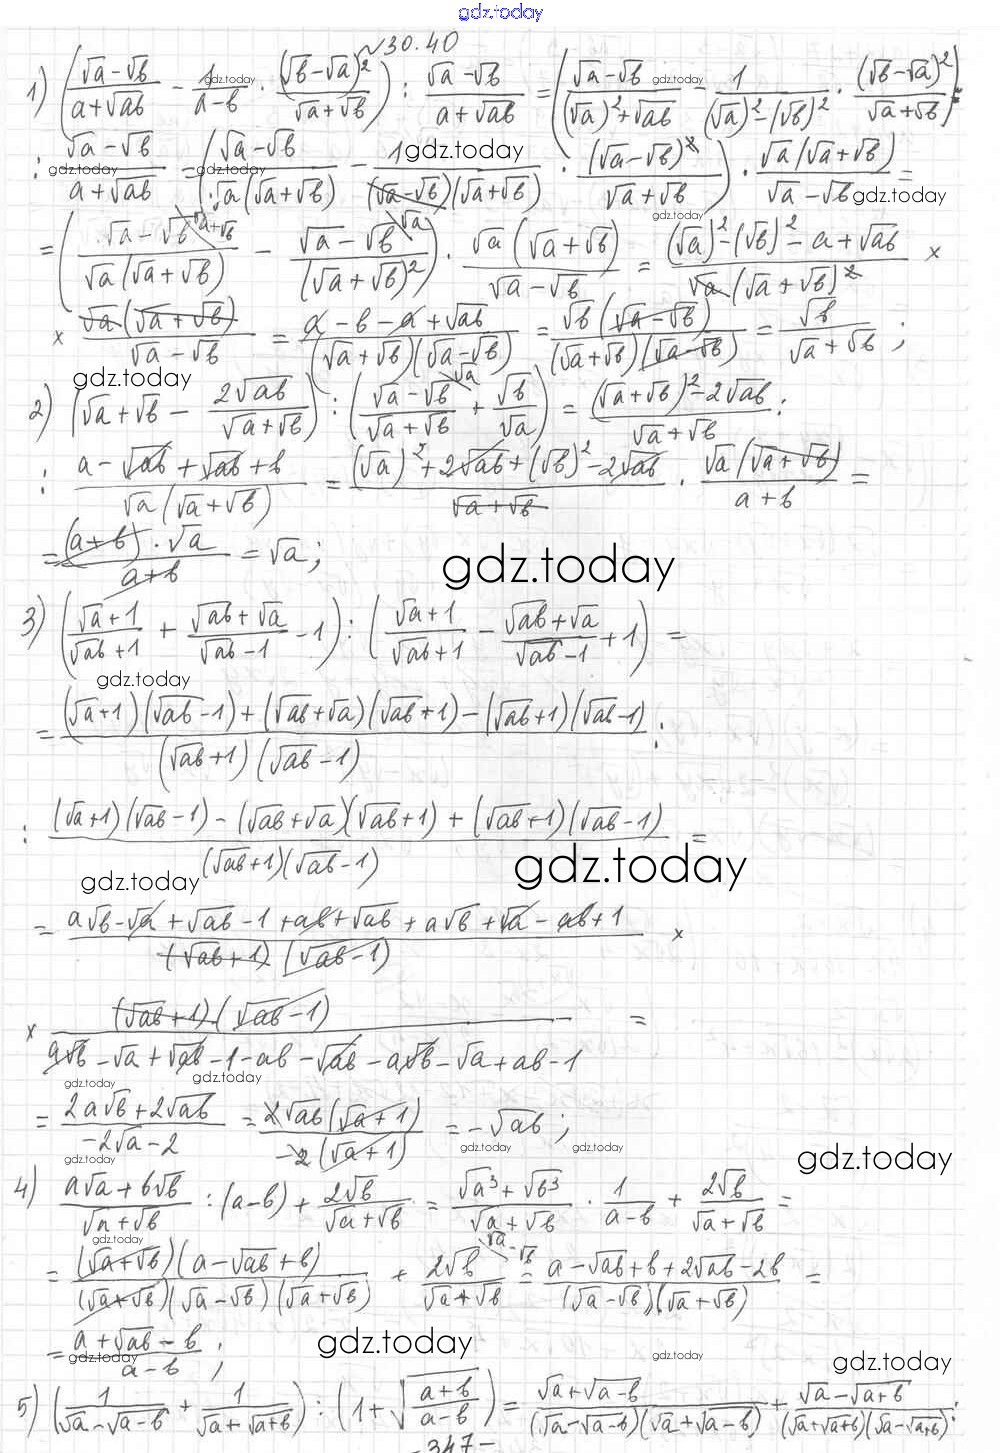 gdz.today
№30.40
1) ((√a-√b)/(a+√ab) - 1/(a-b) · (√b-√a)²/(√a+√b)) : (√a-√b)/(a+√ab) = ((√a-√b)/((√a)²+√ab) - 1/((√a)²-(√b)²) · (√b-√a)²/(√a+√b)) :
: (√a-√b)/(a+√ab) = ((√a-√b)/(√a(√a+√b)) - 1/((√a-√b)(√a+√b)) · (√a-√b)²/(√a+√b)) · √a(√a+√b)/(√a-√b) =
= ((√a-√b)/(√a(√a+√b)) - (√a-√b)/(√a+√b)²) · √a(√a+√b)/(√a-√b) = ((√a)²-(√b)²-a+√ab)/(√a(√a+√b)²) ×
× √a(√a+√b)/(√a-√b) = (a-b-a+√ab)/((√a+√b)(√a-√b)) = √b(√a-√b)/((√a+√b)(√a-√b)) = √b/(√a+√b) ;
2) (√a+√b - 2√ab/(√a+√b)) : ((√a-√b)/(√a+√b) + √b/√a) = ((√a+√b)²-2√ab)/(√a+√b) :
: (a-√ab+√ab+b)/(√a(√a+√b)) = ((√a)²+2√ab+(√b)²-2√ab)/(√a+√b) · √a(√a+√b)/(a+b) =
= (a+b)·√a/(a+b) = √a ;
gdz.today
3) ((√a+1)/(√ab+1) + (√ab+√a)/(√ab-1) - 1) : ((√a+1)/(√ab+1) - (√ab+√a)/(√ab-1) + 1) =
gdz.today
= ((√a+1)(√ab-1)+(√ab+√a)(√ab+1)-(√ab+1)(√ab-1))/((√ab+1)(√ab-1)) :
: ((√a+1)(√ab-1)-(√ab+√a)(√ab+1)+(√ab+1)(√ab-1))/((√ab+1)(√ab-1)) =
gdz.today gdz.today
= (a√b-√a+√ab-1+ab+√ab+a√b+√a-ab+1)/((√ab+1)(√ab-1)) ×
× (√ab+1)(√ab-1)/(a√b-√a+√ab-1-ab-√ab-a√b-√a+ab-1) =
gdz.today gdz.today
= (2a√b+2√ab)/(-2√a-2) = 2√ab(√a+1)/(-2(√a+1)) = -√ab ;
gdz.today gdz.today gdz.today gdz.today
4) (a√a+b√b)/(√a+√b) : (a-b) + 2√b/(√a+√b) = (√a³+√b³)/(√a+√b) · 1/(a-b) + 2√b/(√a+√b) =
gdz.today
= (√a+√b)(a-√ab+b)/((√a+√b)(√a-√b)(√a+√b)) + 2√b/(√a+√b) = (a-√ab+b+2√ab-2b)/((√a-√b)(√a+√b)) =
= (a+√ab-b)/(a-b) ;
gdz.today gdz.today gdz.today gdz.today
5) (1/(√a-√a-b) + 1/(√a+√a+b)) : (1+√((a+b)/(a-b))) = (√a+√a-b)/((√a-√a-b)(√a+√a-b)) + (√a-√a+b)/((√a+√a+b)(√a-√a+b)) :
-347-